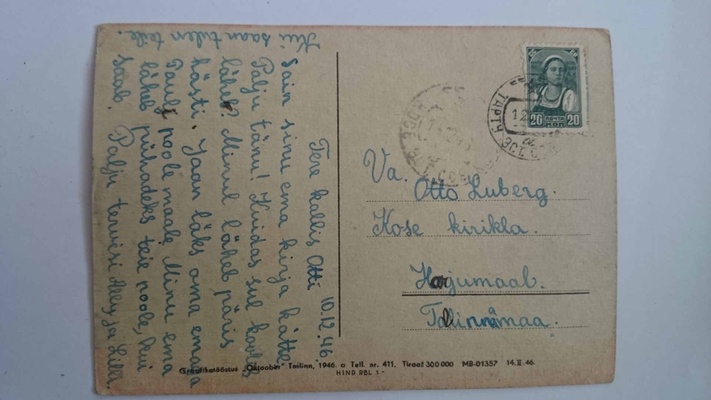 Tere kallis Otti 10.12.46.
Sain sinu ema kirja kätte.
Palju tänu! Kuidas sul koolis
läheb? Minul läheb päris
hästi. Jaan läks oma emaga
Pauli poole maale. Minu ema
läheb pühadeks teie poole, kui
saab. Palju tervisi Aley ja Lilla
Kui saan tulen teile.
20 20
КОП
ТАРТУ
Va. Otto Luberg.
Kose kirikla.
Harjumaal.
Tallinnmaa.
Graafikatööstus "Oktoober" Tallinn, 1946. o Tell. nr. 411. Tiraaž 300 000 MB-01357 14. II. 46.
HIND RBL 1.-